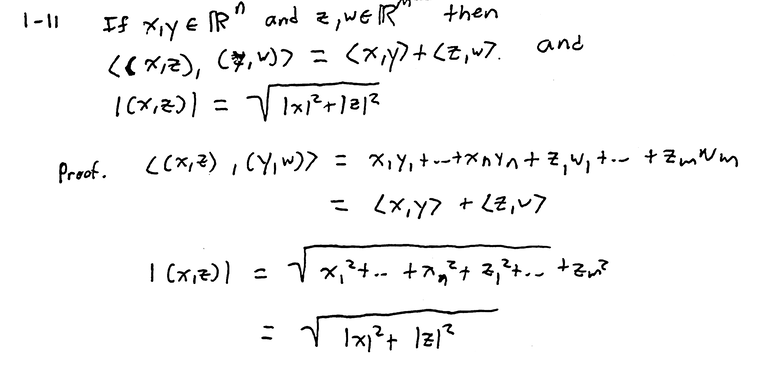 1-11 If x,y ∈ ℝⁿ and z,w ∈ ℝᵐ then
⟨(x,z), (y,w)⟩ = ⟨x,y⟩ + ⟨z,w⟩. and
|(x,z)| = √(|x|² + |z|²)
Proof. ⟨(x,z), (y,w)⟩ = x₁y₁ + ... + xₙyₙ + z₁w₁ + ... + zₘwₘ
= ⟨x,y⟩ + ⟨z,w⟩
|(x,z)| = √(x₁² + ... + xₙ² + z₁² + ... + zₘ²)
= √(|x|² + |z|²)